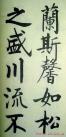 蘭斯馨如松
之盛川流不